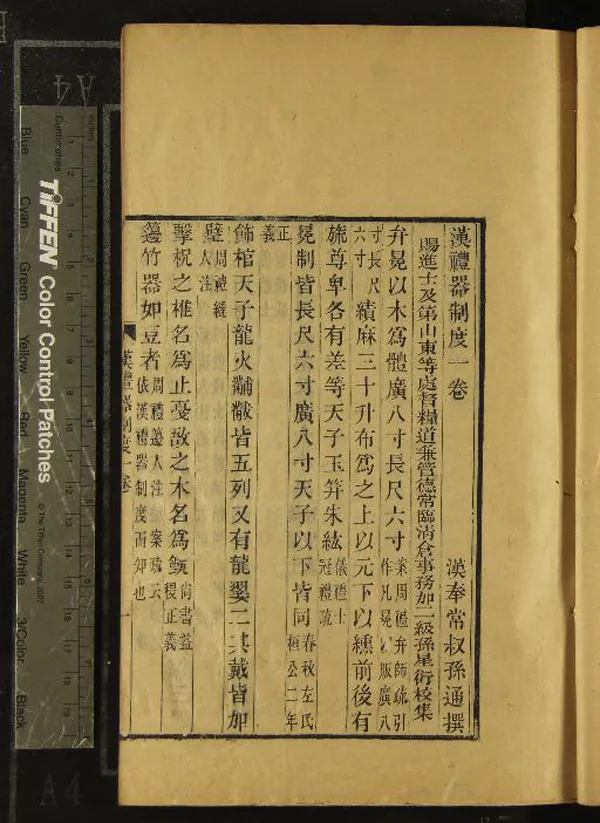 漢禮器制度一卷 漢奉常叔孫通撰
賜進士及第山東等處督糧道兼管德常臨清倉事務加二級孫星衍校集
弁冕以木爲體廣八寸長尺六寸案周禮弁師疏引作凡冕以版廣八
寸長尺六寸績麻三十升布爲之上以元下以纁前後有
旒尊卑各有差等天子玉笄朱紘儀禮士冠禮疏
冕制皆長尺六寸廣八寸天子以下皆同春秋左氏桓公二年
正義
飾棺天子龍火黼黻皆五列又有龍翣二其戴皆加
璧周禮縫人注
擊柷之椎名爲止戛敔之木名爲籈尚書益稷正義
籩竹器如豆者周禮籩人注案疏云依漢禮器制度而知也
漢禮器制度一卷 一
Inches
Centimetres
TIFFEN Color Control Patches
© The Tiffen Company, 2007
Blue
Cyan
Green
Yellow
Red
Magenta
White
3/Color
Black
A4
A4